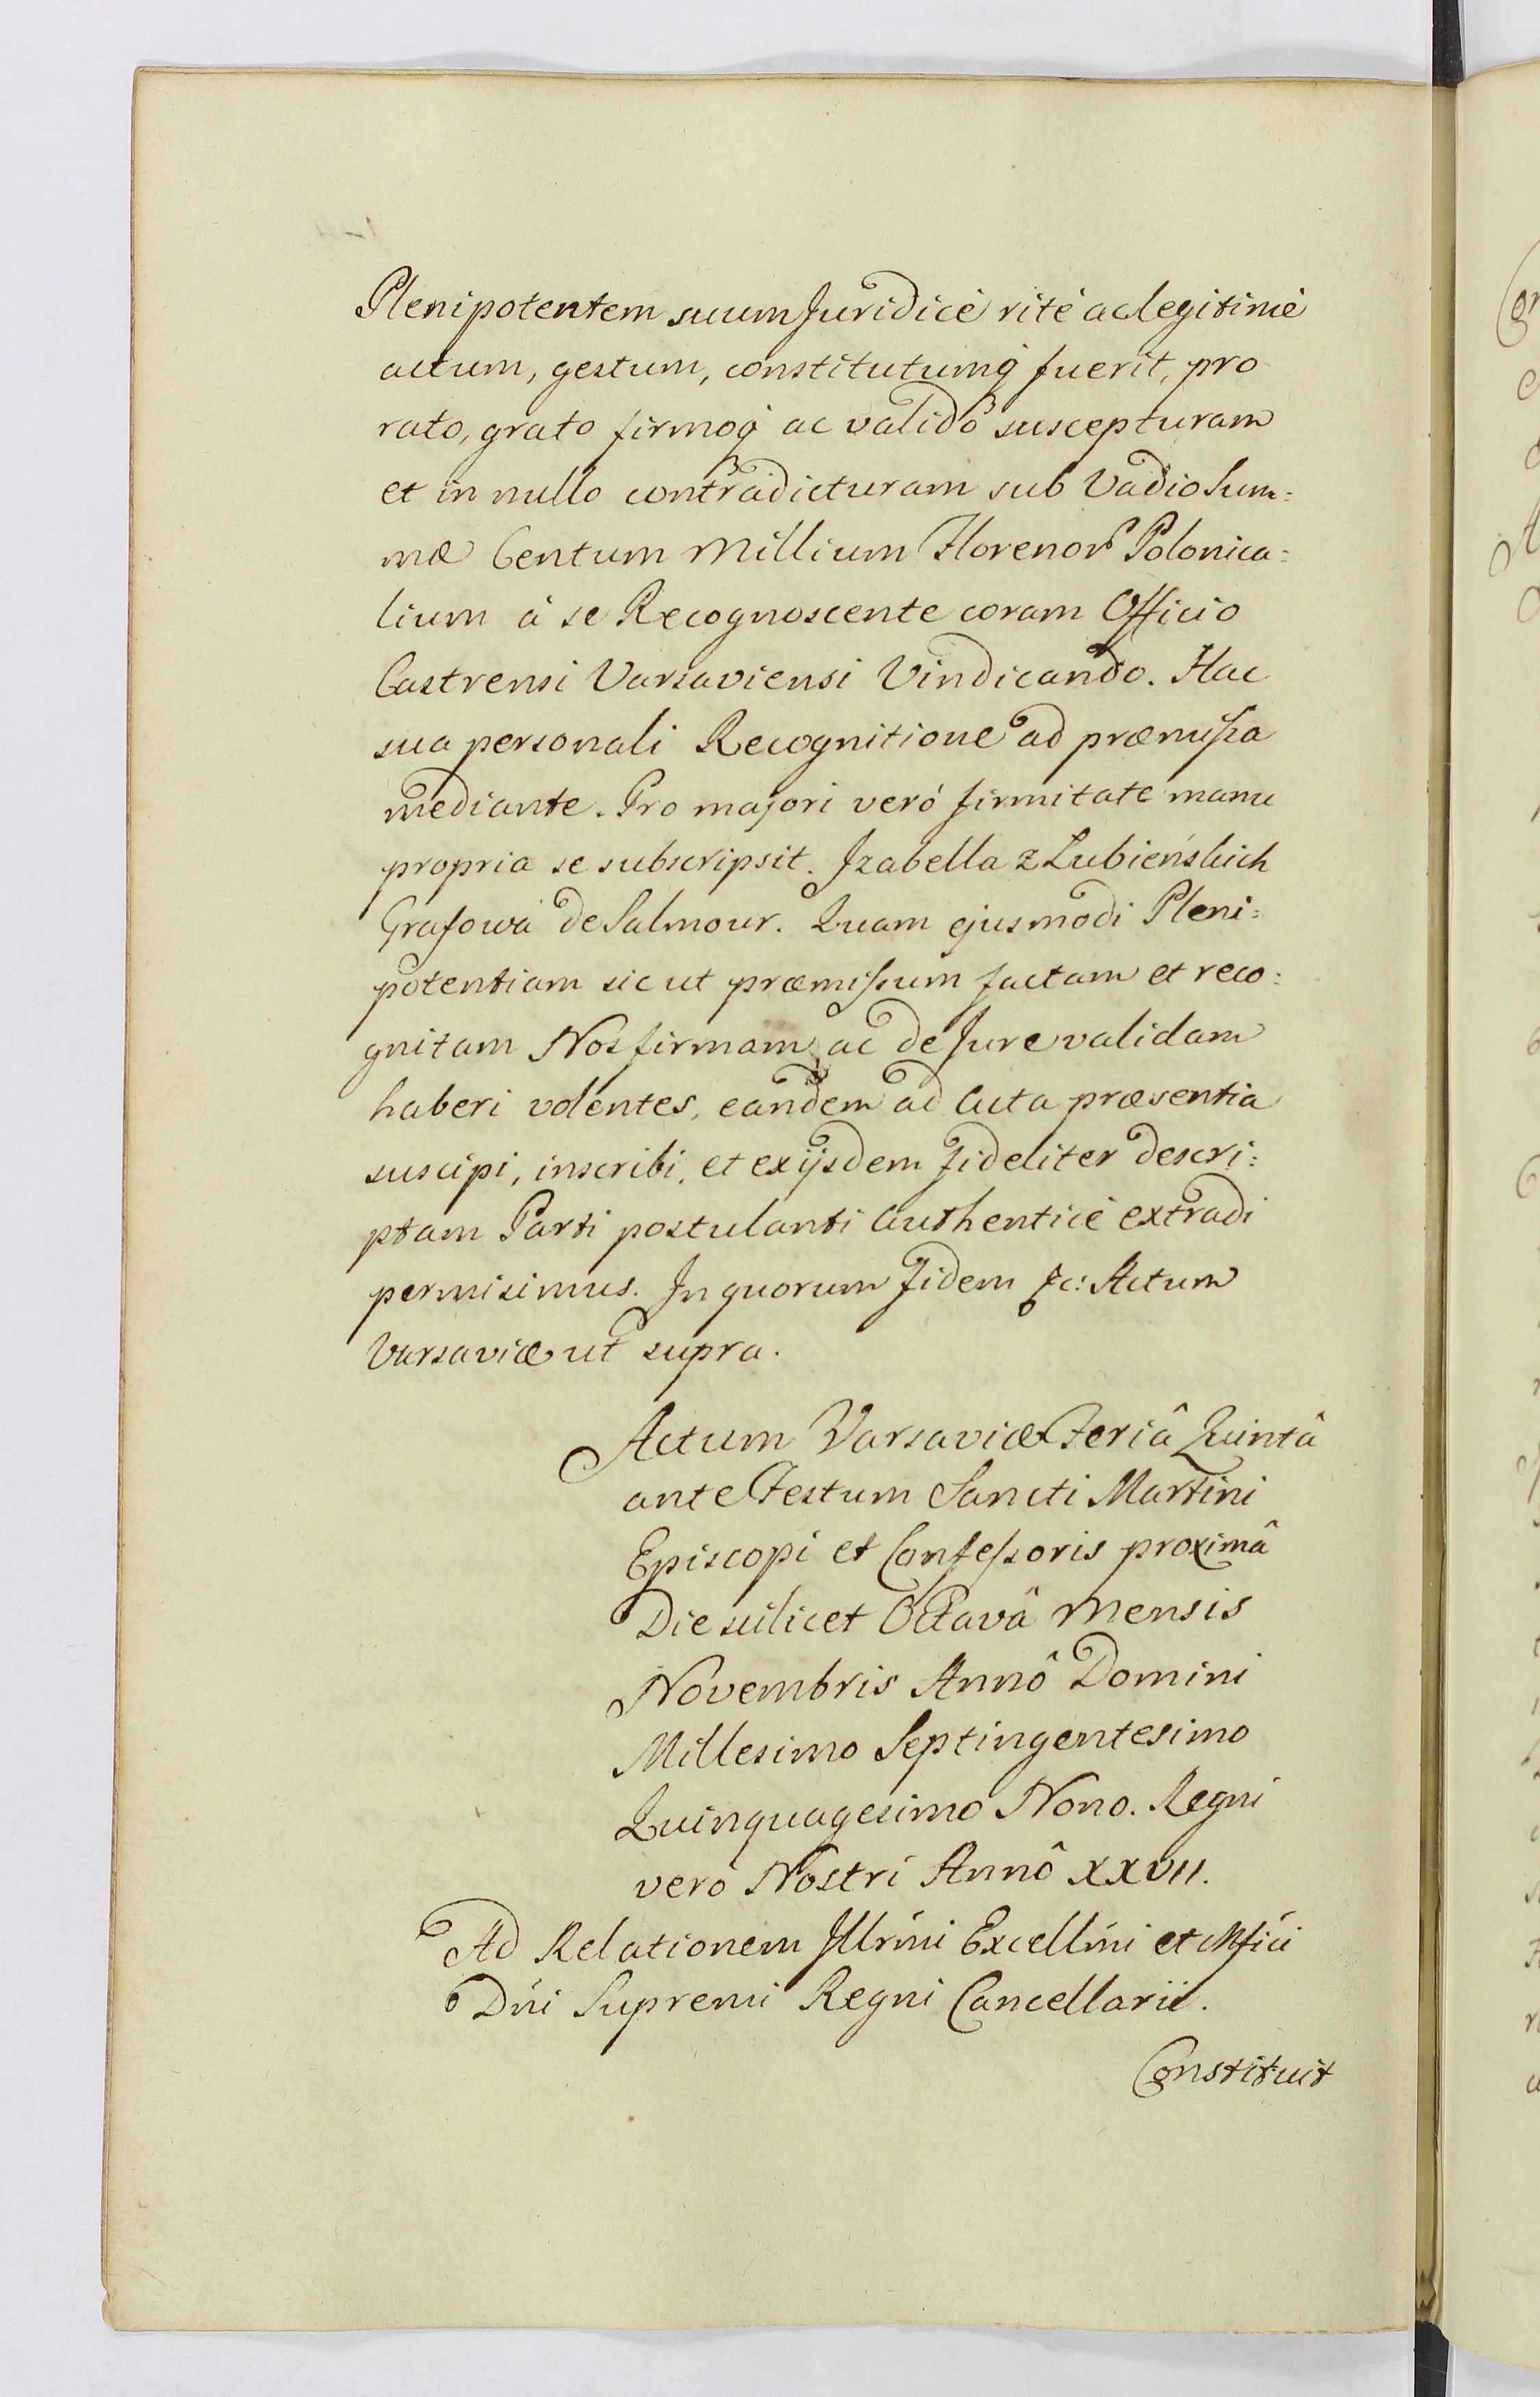 Plenipotentem suum Juridicè ritè ac legitimè
actum, gestum, constitutumq́ fuerit, pro
rato, grato firmoq́ ac validô suscepturam
et in nullo contradicturam sub Vadio Sum:
mæ Centum Millium Florenor Polonica:
lium à se Recognoscente coram Officio
Castrensi Varsaviensi Vindicando. Hac
sua personali Recognitione ad præmissa
mediante. Pro majori verò firmitate manu
propria se subscripsit. Izabella z Łubieńskich
Grafowa de Salmour. Quam ejusmodi Pleni:
potentiam sic ut præmissum factam et reco:
gnitam Nos firmam ac de Jure validam
haberi volentes, eandem ad Acta præsentia
suscipi, inscribi, et ex ijsdem fideliter descri:
ptam Parti postulanti Authenticè extradi
permisimus. In quorum fidem &c: Actum
Varsaviæ ut supra.
Actum Varsaviæ Feriâ Quintâ
ante Festum Sancti Martini
Episcopi et Confessoris proximâ
Die scilicet Octavâ Mensis
Novembris Annô Domini
Millesimo Septingentesimo
Quinquagesimo Nono. Regni
verò Nostri Annô XXVII.
Ad Relationem Illrm̃i Excellm̃i et Mfici
Dn̄i Supremi Regni Cancellarii.
Constituit